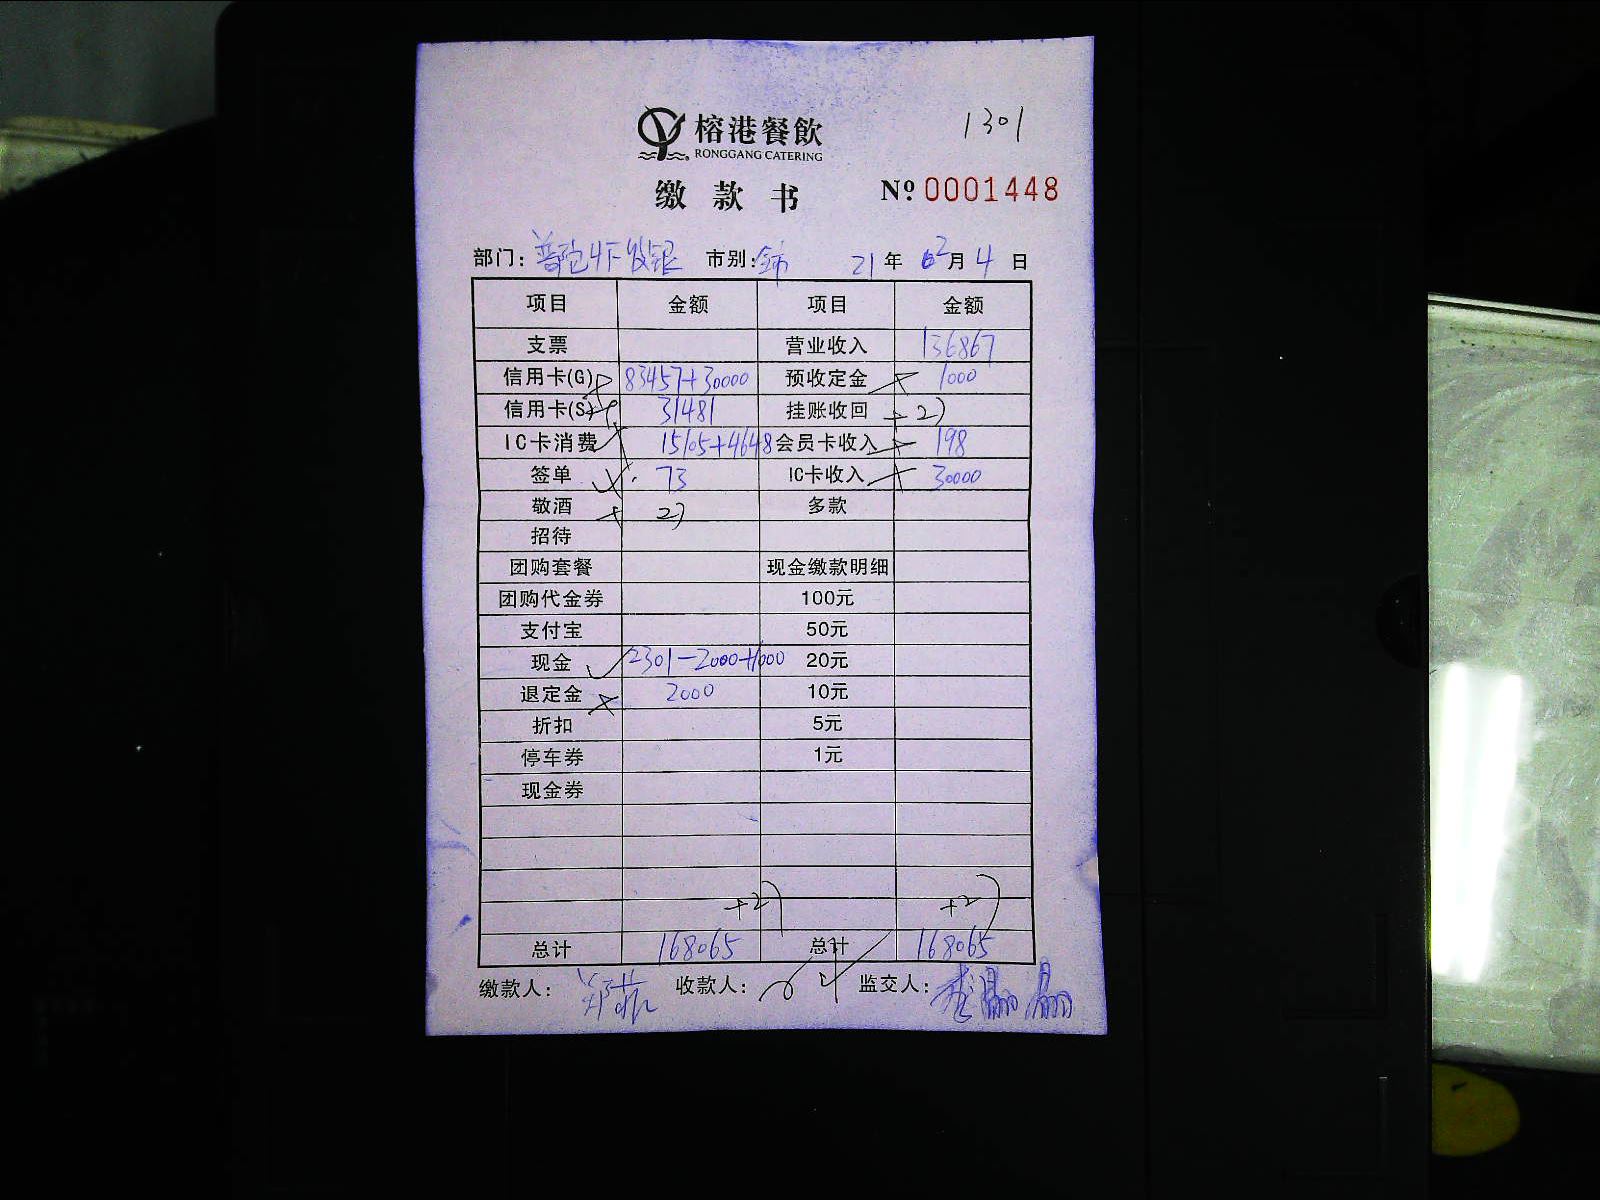 1301
榕港餐飲
RONGGANG CATERING
缴款书 Nº 0001448
部门: 普陀4下收银 市别: 全市 21年 02月 4日
项目 金额 项目 金额
支票 营业收入 136867
信用卡(G) 83457+30000 预收定金 1000
信用卡(S) 31481 挂账收回 +2)
IC卡消费 15105+4648 会员卡收入 198
签单 73 IC卡收入 30000
敬酒 2) 多款
招待
团购套餐 现金缴款明细
团购代金券 100元
支付宝 50元
现金 2301-2000+1000 20元
退定金 2000 10元
折扣 5元
停车券 1元
现金券
+2) +2)
总计 168065 总计 168065
缴款人: 郑菲 收款人: 监交人: